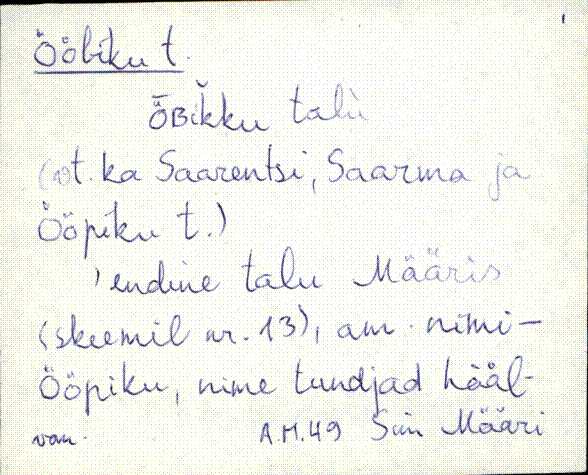 Ööbiku t.
ȪBikku talu
(vt. ka Saarentsi, Saarma ja
Ööpiku t.)
endine talu Määris
(skeemil nr. 13), am. nimi-
Ööpiku, nime tundjad hääl-
van. A.M.49 Siin Määri